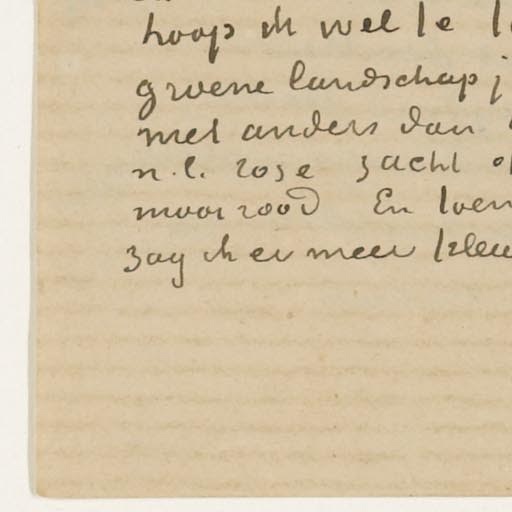 hoop ik wel te
groene landschap j
met anders dan
n.l. rose zacht of
mooi rood En toen
zag ik er meer kleu